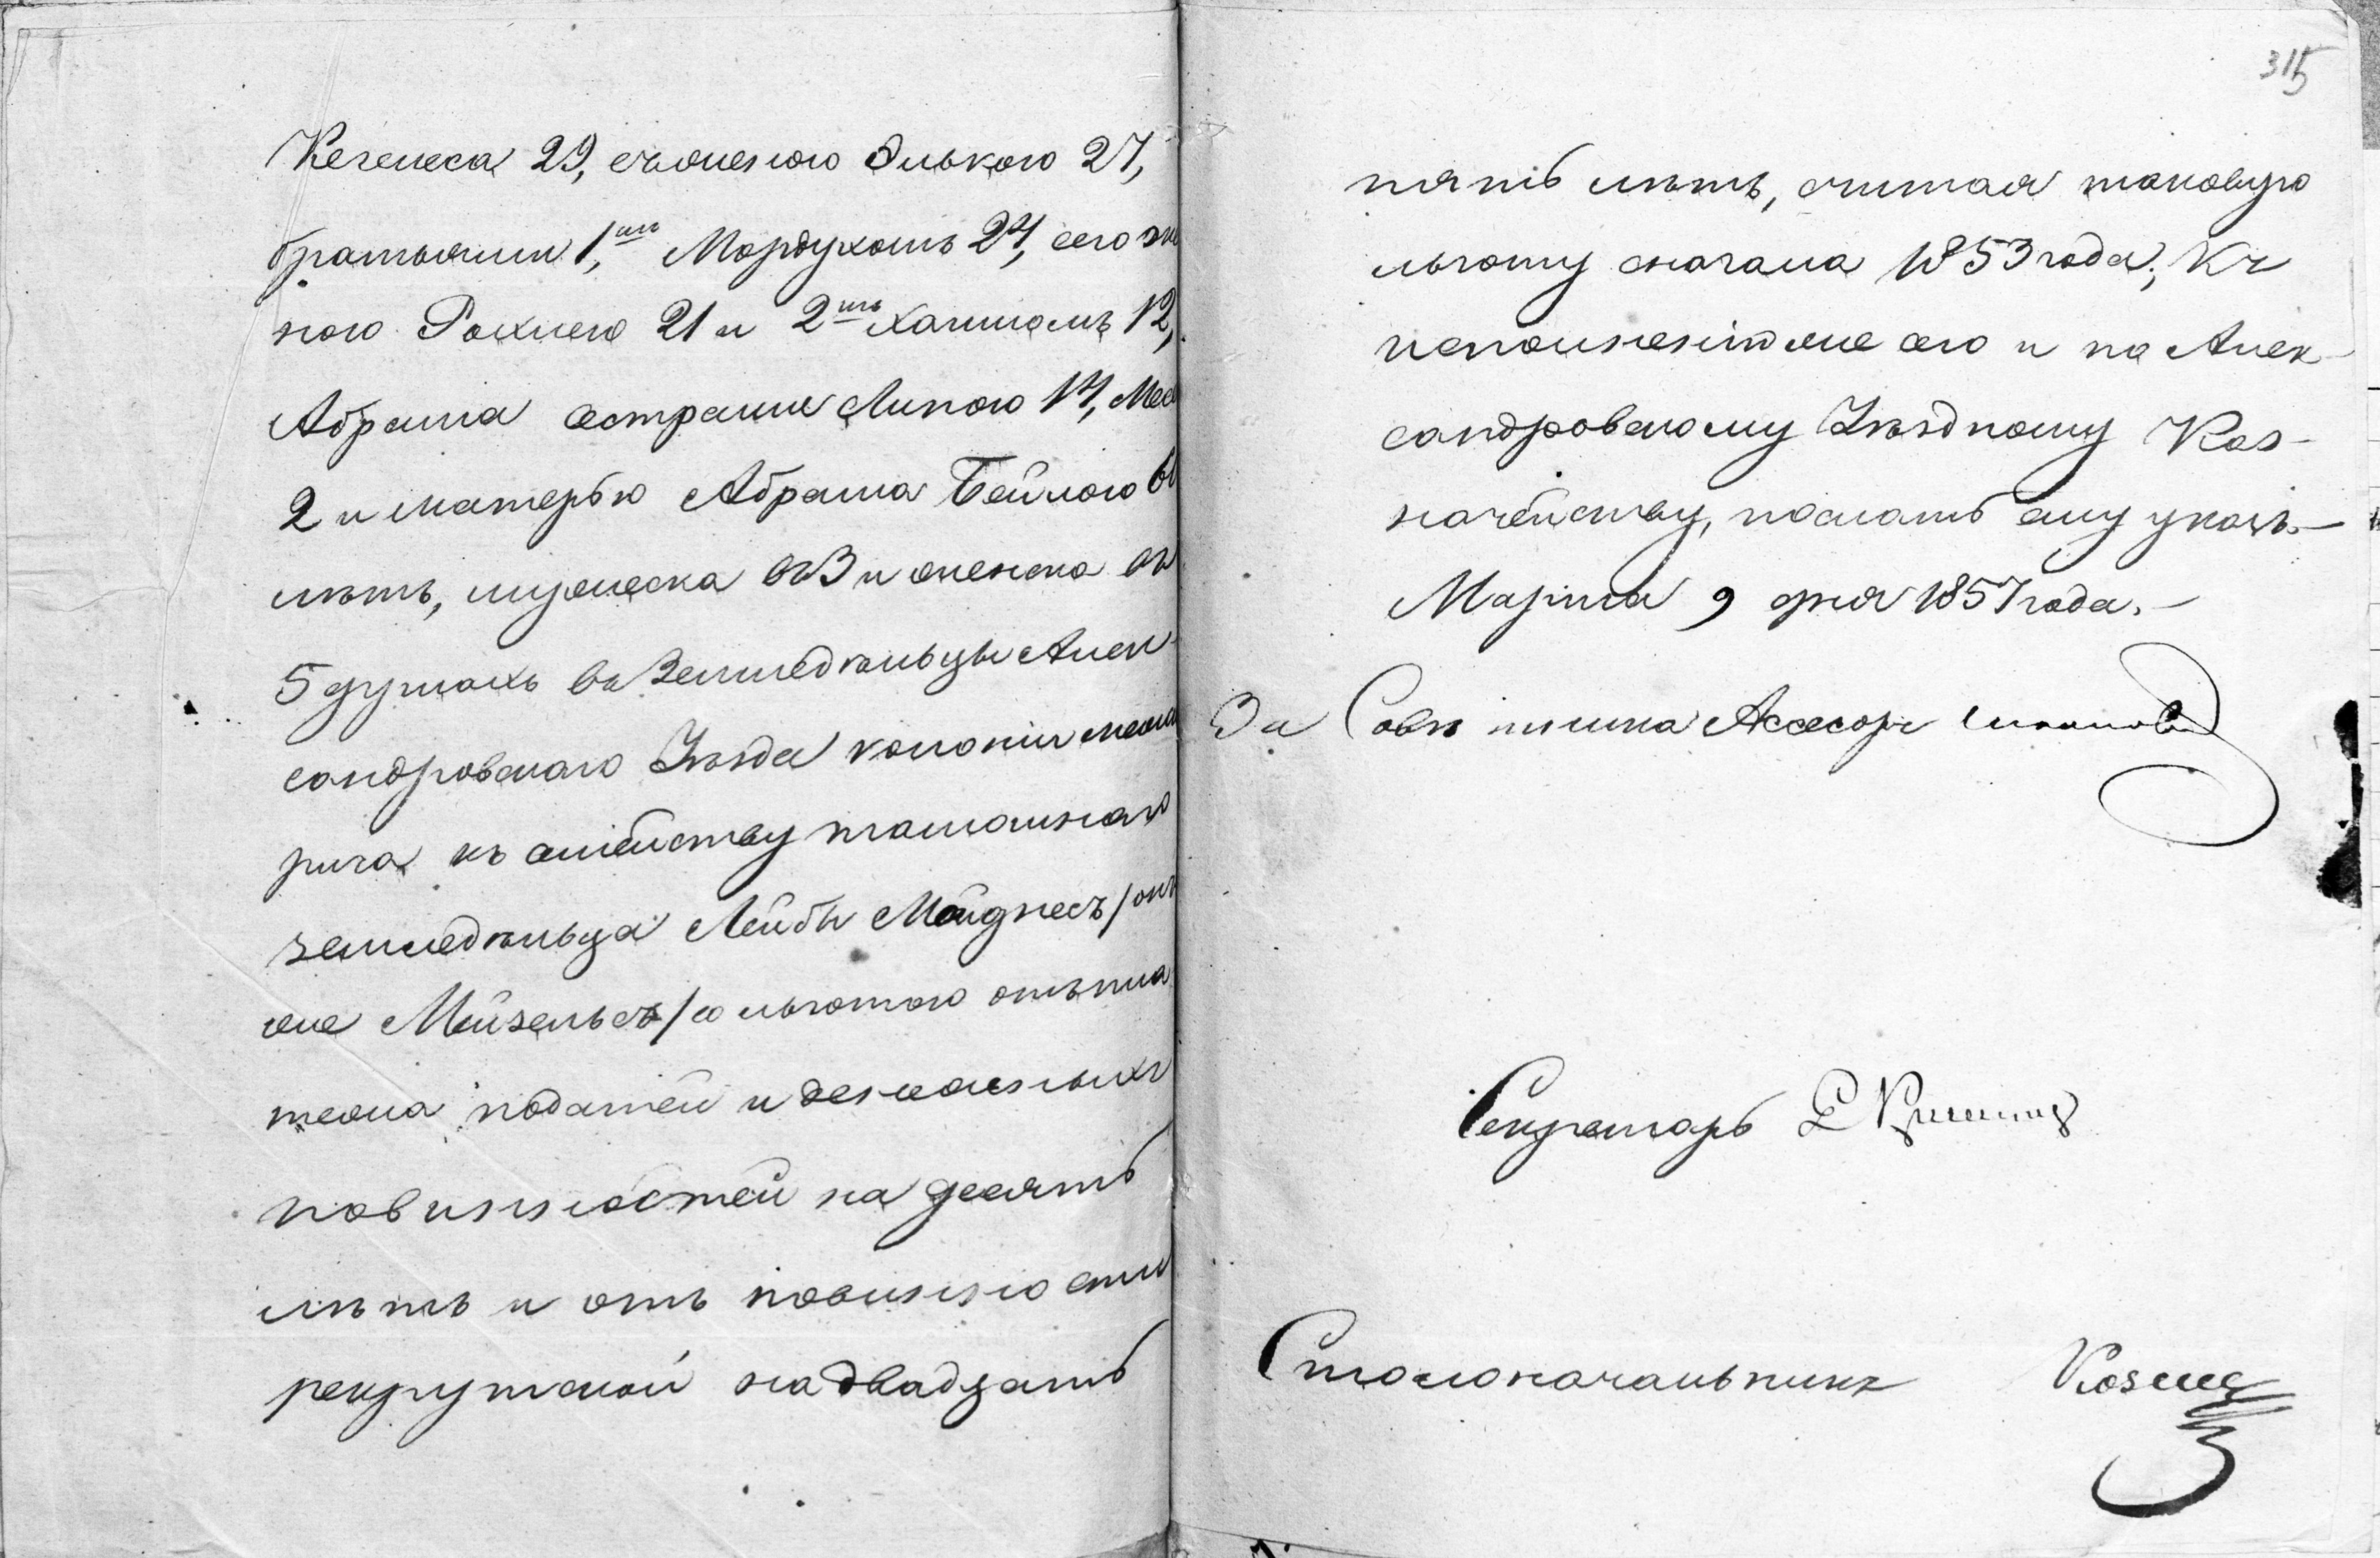 Кегелеса 29, съ женою Элькою 27,
братьями 1,мъ Мордухомъ 24, его же
ною Рохлею 21 и 2мъ Хаимомъ 12,
Абрама сестрами Липою 14,
2 и матерью Абрама Бейлою
лѣтъ, мужеска въ 3 и женска въ
5 душахъ въ Земледѣльцы Алек-
сандровскаго Уѣзда колоніи
рича къ семейству тамошняго
земледѣльца Лейбы Мейднесъ / онъ
же Мейзельсъ / со льготою отъ пла
тежа податей и денежныхъ
повинностей на десять
лѣтъ и отъ повинности
рекрутской на двадцать
315
пять лѣтъ, считая таковую
льготу сначала 1853 года; Къ
исполненію же сего и по Алек-
сандровскому Уѣздному Каз-
начейству, послать ему указъ.-
Марта 9 дня 1857 года.-
За Совѣтника Асесоръ
Секретарь
Столоначальникъ